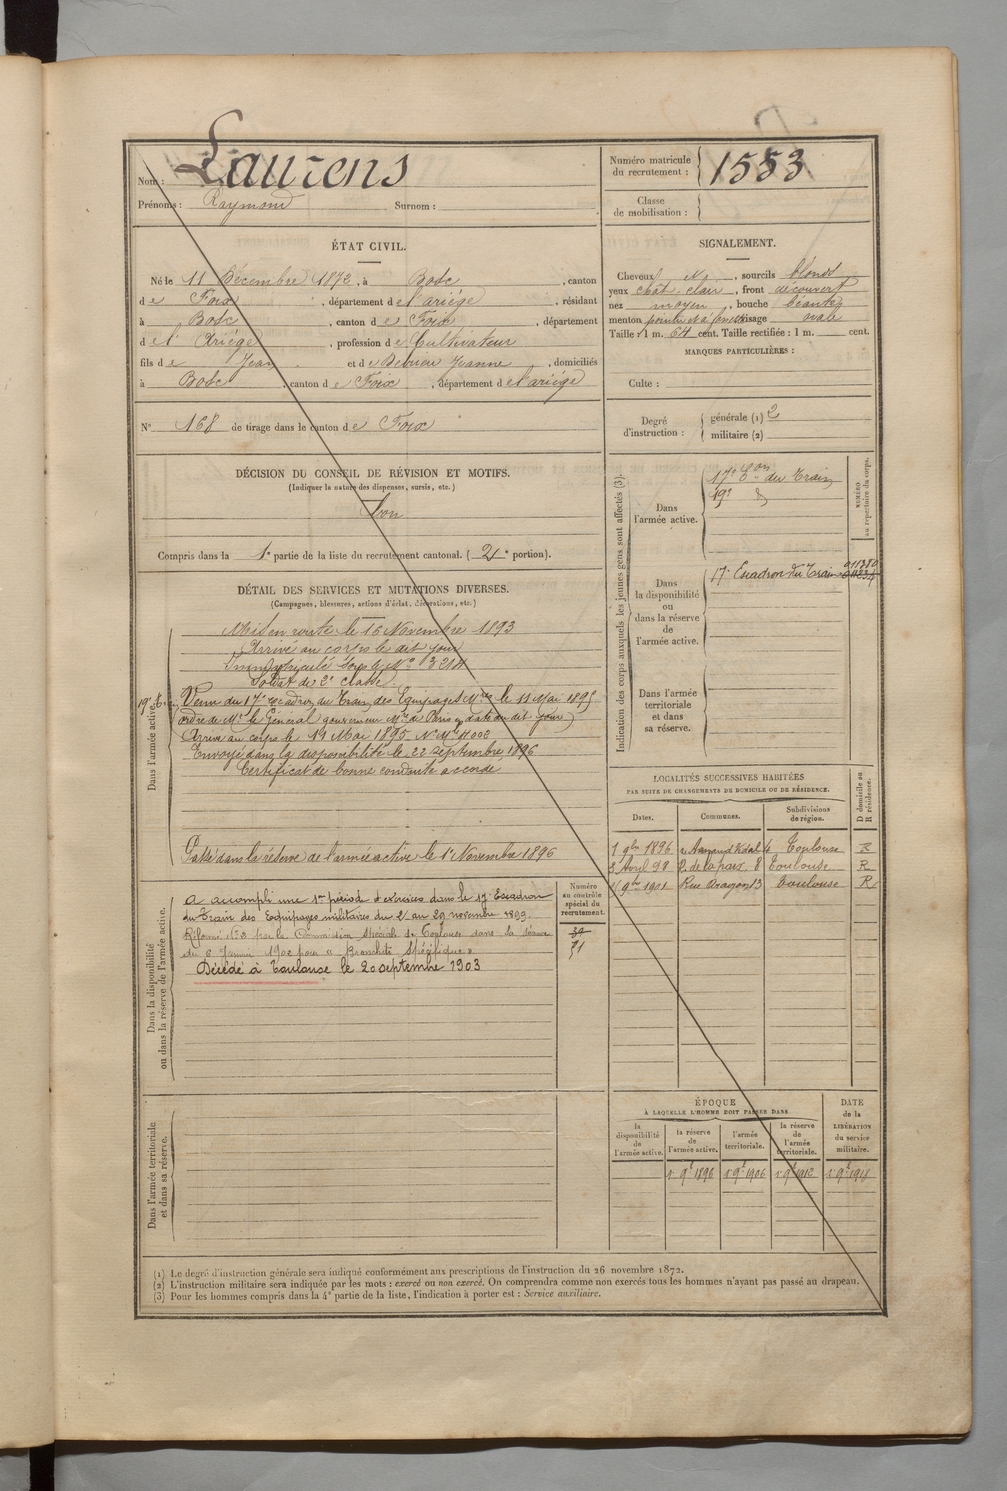 Nom : Laurens
Prénoms : Raymond Surnom :
Numéro matricule du recrutement : 1553
Classe de mobilisation :
ÉTAT CIVIL.
Né le 11 Décembre 1872, à Bosc, canton
de Foix, département de l'ariége, résidant
à Bosc, canton de Foix, département
de l'Ariége, profession de Cultivateur
fils de Jean et de Jeanne, domiciliés
à Bosc, canton de Foix, département de l'ariége
N° 168 de tirage dans le canton de Foix
SIGNALEMENT.
Cheveux , sourcils blonds
yeux chât. clair, front découvert
nez moyen, bouche béante
menton pointu et à visage ovale
Taille : 1 m. 64 cent. Taille rectifiée : 1 m. cent.
MARQUES PARTICULIÈRES :
Culte :
Degré d'instruction : générale (1) 2
militaire (2)
DÉCISION DU CONSEIL DE RÉVISION ET MOTIFS.
(Indiquer la nature des dispenses, sursis, etc.)
Bon
Compris dans la 1e partie de la liste du recrutement cantonal. (2e portion).
DÉTAIL DES SERVICES ET MUTATIONS DIVERSES.
(Campagnes, blessures, actions d'éclat, décorations, etc.)
Dans l'armée active.
Mis en route le 16 Novembre 1893
Arrivé au corps le dit jour
Immatriculé sous le No 3214
Soldat de 2e classe.
Venu du 17e escadron du Train des Equipages Mres le 11 Mai 1895
ordre de Mr le Général gouverneur Mre de Paris en date du dit jour)
Arrivé au corps le 19 Mai 1895 No Mle 4002
Envoyé dans la disponibilité le 22 septembre 1896
Certificat de bonne conduite accordé
Passé dans la réserve de l'armée active le 1er Novembre 1896
Dans la disponibilité ou dans la réserve de l'armée active.
A accompli une 1re période d'exercices dans le 17e Escadron
du Train des Equipages militaires du 2 au 29 novembre 1899.
Réformé No 2 par la Commission spéciale de Toulouse dans la séance
du 6 Janvier 1902 pour « Bronchite spécifique »
Décédé à Toulouse le 20 septembre 1903
Numéro au contrôle spécial du recrutement.
71
Dans l'armée territoriale et dans sa réserve.
Indication des corps auxquels les jeunes gens sont affectés (3).
NUMÉRO au répertoire du corps.
Dans l'armée active.
17e Eon du Train
19e d°
Dans la disponibilité ou dans la réserve de l'armée active.
17e Escadron du Train
Dans l'armée territoriale et dans sa réserve.
LOCALITÉS SUCCESSIVES HABITÉES
PAR SUITE DE CHANGEMENTS DE DOMICILE OU DE RÉSIDENCE.
D domicile ou R résidence.
Dates. Communes. Subdivisions de région.
1 9bre 1896 r. Arnaud Vidal 4 Toulouse R
3 Avril 98 R. de la paix, 8 Toulouse R
11 9bre 1901 Rue Aragon 13 Toulouse R
ÉPOQUE
À LAQUELLE L'HOMME DOIT PASSER DANS
la disponibilité de l'armée active.
la réserve de l'armée active.
l'armée territoriale.
la réserve de l'armée territoriale.
DATE de la LIBÉRATION du service militaire.
1er 9bre 1896 1er 9bre 1906 1er 9bre 1912 1er 9bre 1918
(1) Le degré d'instruction générale sera indiqué conformément aux prescriptions de l'instruction du 26 novembre 1872.
(2) L'instruction militaire sera indiquée par les mots : exercé ou non exercé. On comprendra comme non exercés tous les hommes n'ayant pas passé au drapeau.
(3) Pour les hommes compris dans la 4e partie de la liste, l'indication à porter est : Service auxiliaire.